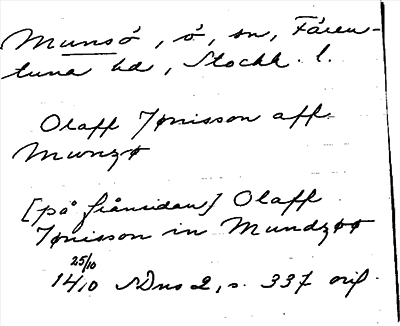 Munsö, ö, sn, Fären-
tuna hd, Stockh. l.
Olaff Jønisson aff
Mwnzø
[på frånsidan] Olaff
Jønisson in Mundzøø
25/10 1410 SDns 2, s. 337 orig.